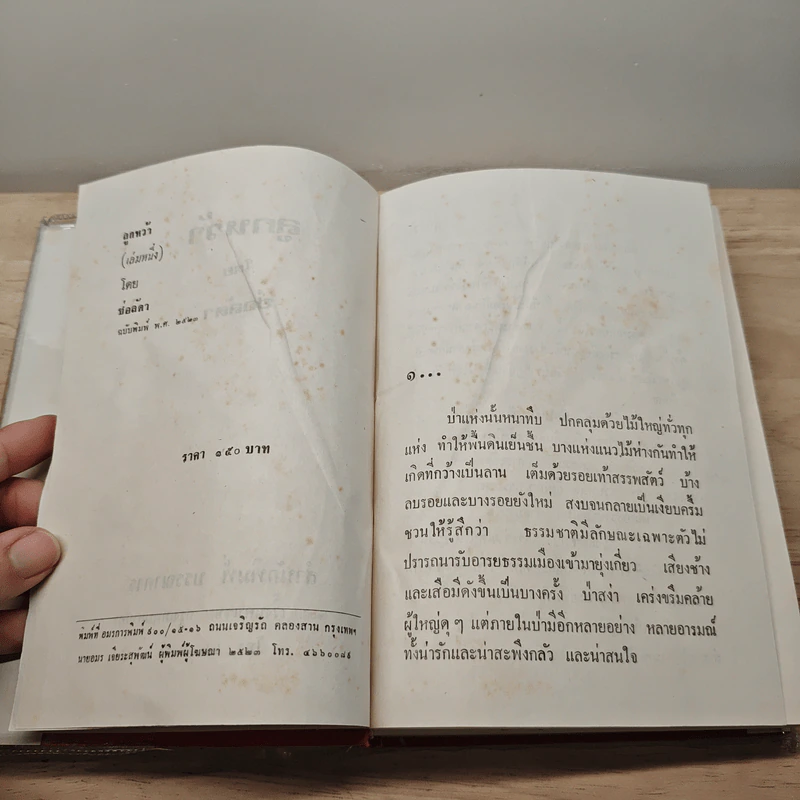 ลูกหว้า
(เล่มหนึ่ง)
โดย
ช่อลัดา
ฉบับพิมพ์ พ.ศ. ๒๕๒๓
ราคา ๑๕๐ บาท
พิมพ์ที่ อมรการพิมพ์ ๑๐๐/๑๕-๑๖ ถนนเจริญรัถ คลองสาน กรุงเทพฯ
นายอมร เจียระสุพัฒน์ ผู้พิมพ์ผู้โฆษณา ๒๕๒๓ โทร. ๔๖๖๐๐๘๑
๑...
ป่าแห่งนั้นหนาทึบ ปกคลุมด้วยไม้ใหญ่ทั่วทุก
แห่ง ทำให้พื้นดินเย็นชื้น บางแห่งแนวไม้ห่างกันทำให้
เกิดที่กว้างเป็นลาน เต็มด้วยรอยเท้าสรรพสัตว์ บ้าง
ลบรอยและบางรอยยังใหม่ สงบจนกลายเป็นเงียบครึ้ม
ชวนให้รู้สึกว่า ธรรมชาติมีลักษณะเฉพาะตัวไม่
ปรารถนารับอารยธรรมเมืองเข้ามายุ่งเกี่ยว เสียงช้าง
และเสือมีดังขึ้นเป็นบางครั้ง ป่าสง่า เคร่งขรึมคล้าย
ผู้ใหญ่ดุ ๆ แต่ภายในป่ามีอีกหลายอย่าง หลายอารมณ์
ทั้งน่ารักและน่าสะพึงกลัว และน่าสนใจ